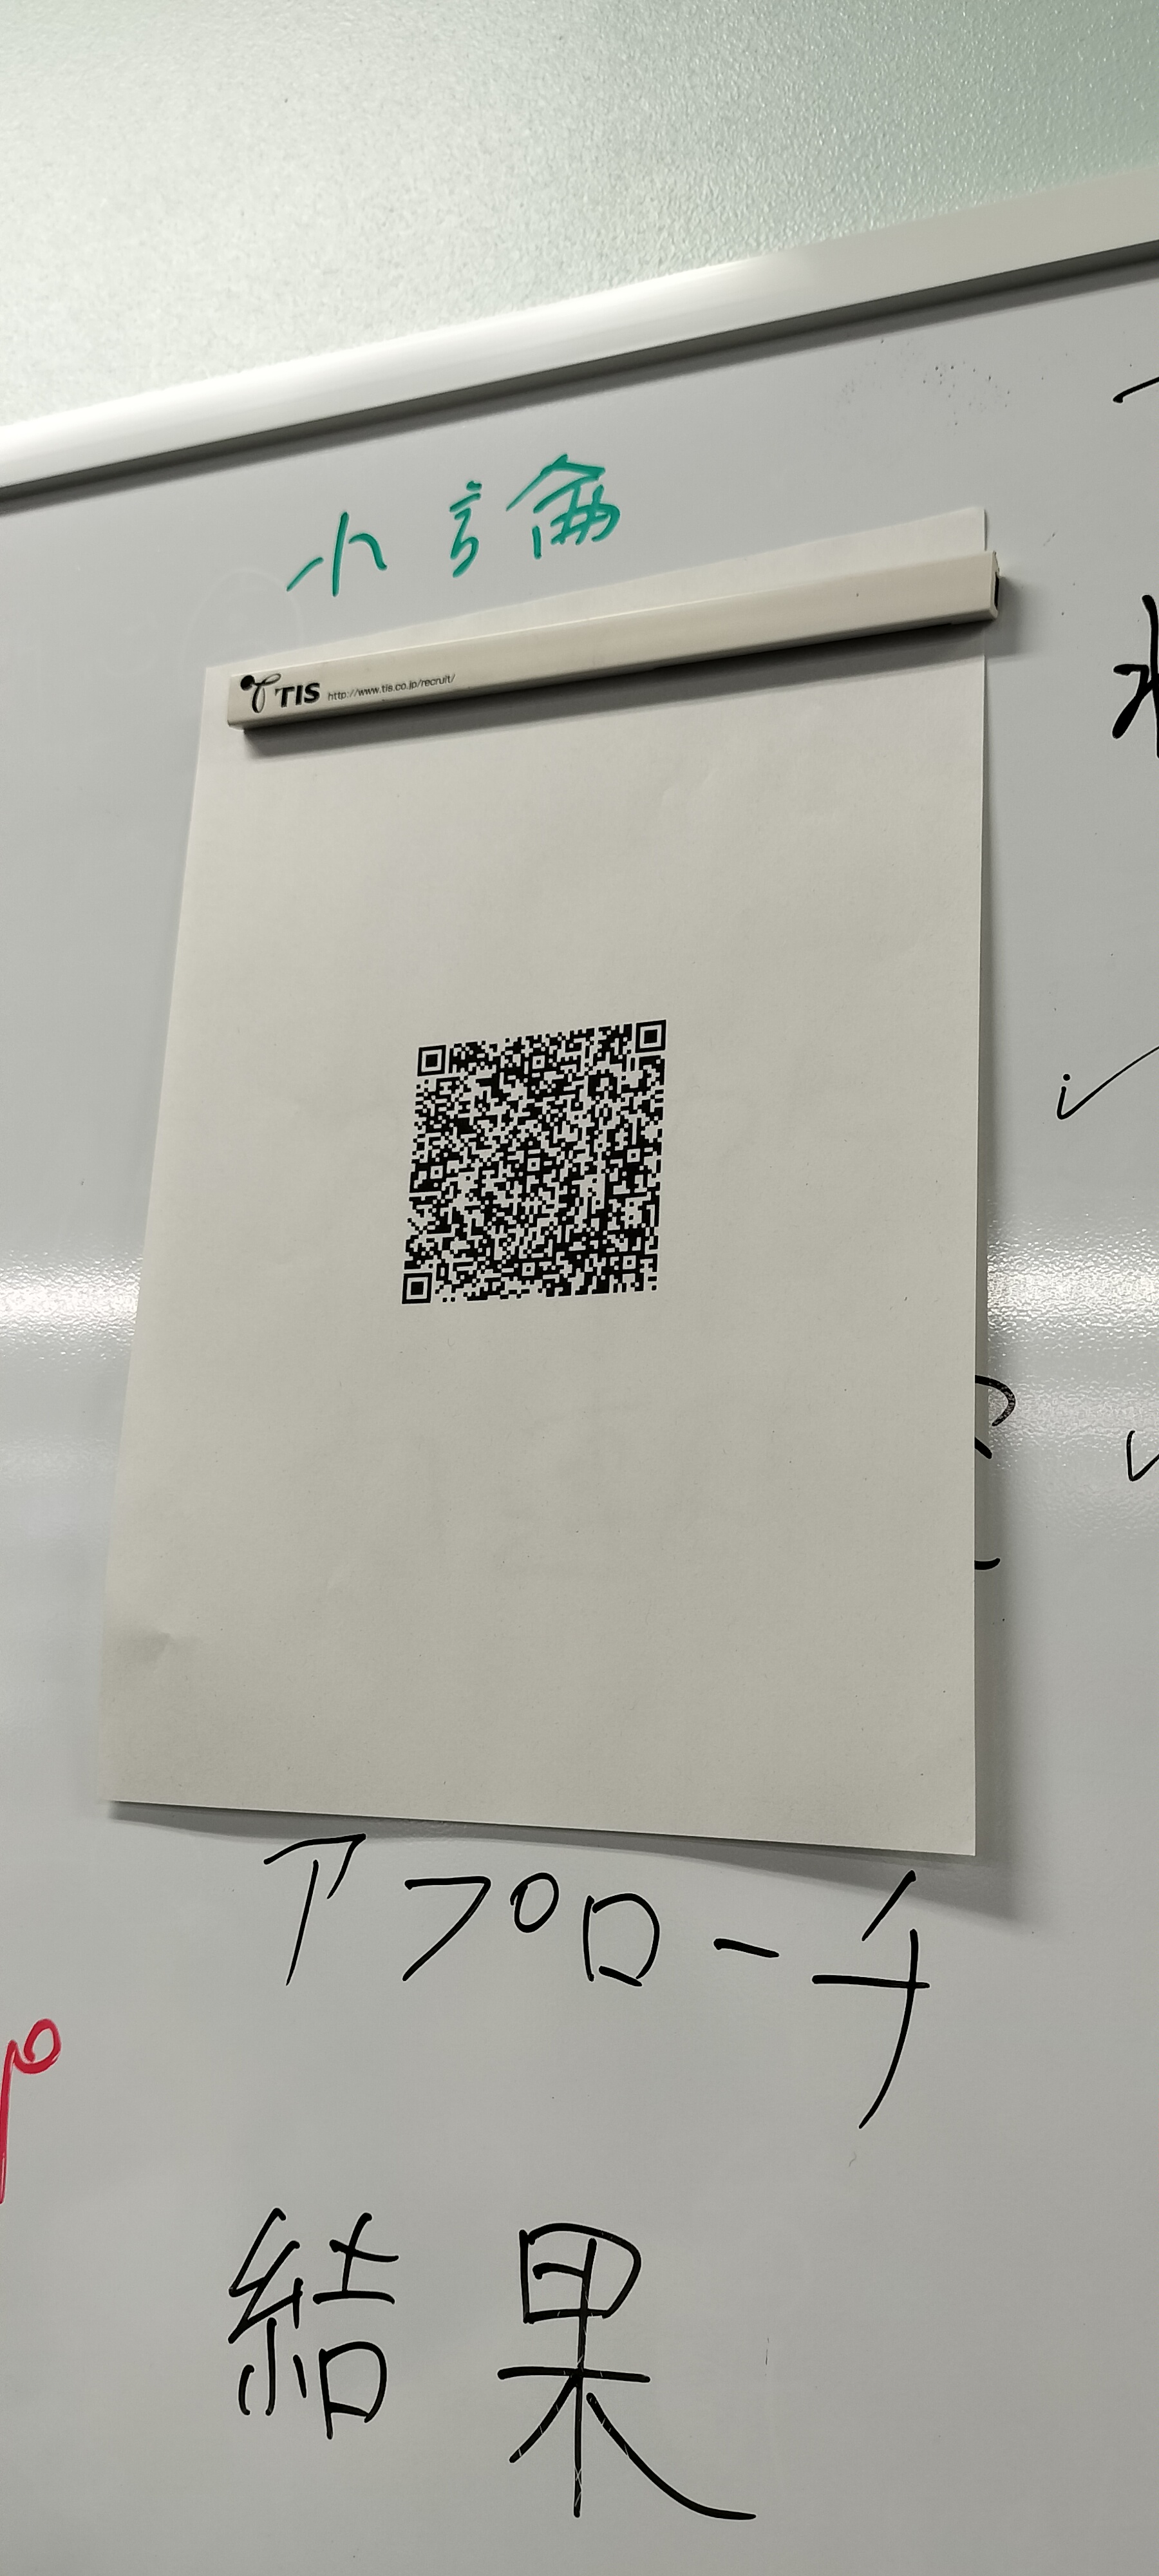 小論
TIS http://www.tis.co.jp/recruit/
アプローチ
結果